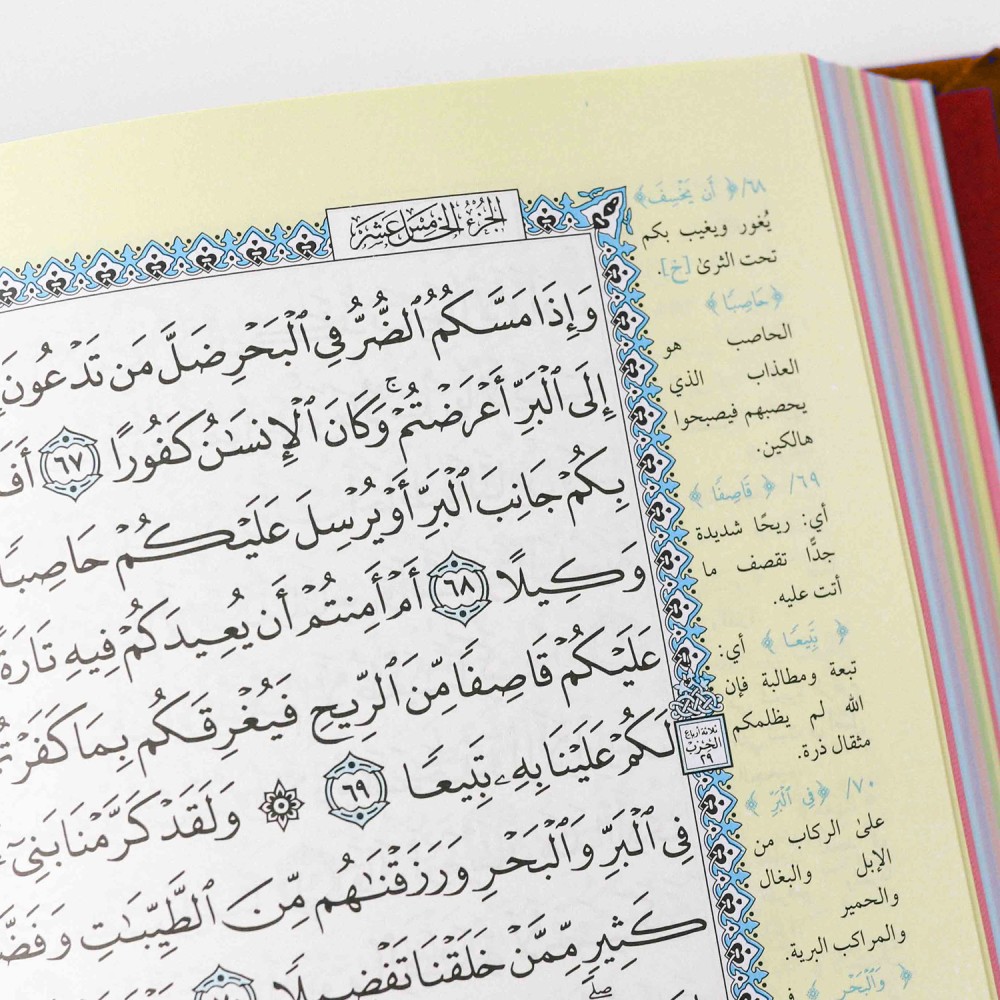 الجُزْءُ الخَامِسَ عَشَرَ
وَإِذَا مَسَّكُمُ ٱلضُّرُّ فِي ٱلْبَحْرِ ضَلَّ مَن تَدْعُونَ
إِلَى ٱلْبَرِّ أَعْرَضْتُمْ ۚ وَكَانَ ٱلْإِنسَٰنُ كَفُورًا ٦٧
بِكُمْ جَانِبَ ٱلْبَرِّ أَوْ يُرْسِلَ عَلَيْكُمْ حَاصِبًا
وَكِيلًا ٦٨ أَمْ أَمِنتُمْ أَن يُعِيدَكُمْ فِيهِ تَارَةً
عَلَيْكُمْ قَاصِفًا مِّنَ ٱلرِّيحِ فَيُغْرِقَكُم بِمَا كَفَرْتُمْ
لَكُمْ عَلَيْنَا بِهِۦ تَبِيعًا ٦٩ ۞ وَلَقَدْ كَرَّمْنَا بَنِيٓ
فِي ٱلْبَرِّ وَٱلْبَحْرِ وَرَزَقْنَٰهُم مِّنَ ٱلطَّيِّبَٰتِ
كَثِيرٍ مِّمَّنْ خَلَقْنَا تَفْضِيلًا
ثلاثة أرباع
الحزب
٢٩
٦٨/ ﴿أَن يَخْسِفَ﴾
يُغور ويغيب بكم
تحت الثرىٰ [خ].
﴿حَاصِبًا﴾
الحاصب هو
العذاب الذي
يحصبهم فيصبحوا
هالكين.
٦٩/ ﴿قَاصِفًا﴾
أي: ريحًا شديدة
جدًّا تقصف ما
أتت عليه.
﴿تَبِيعًا﴾ أي:
تبعة ومطالبة فإن
الله لم يظلمكم
مثقال ذرة.
٧٠/ ﴿فِي ٱلْبَرِّ﴾
علىٰ الركاب من
الإبل والبغال
والحمير
والمراكب البرية.
﴿وَٱلْبَحْرِ﴾ في